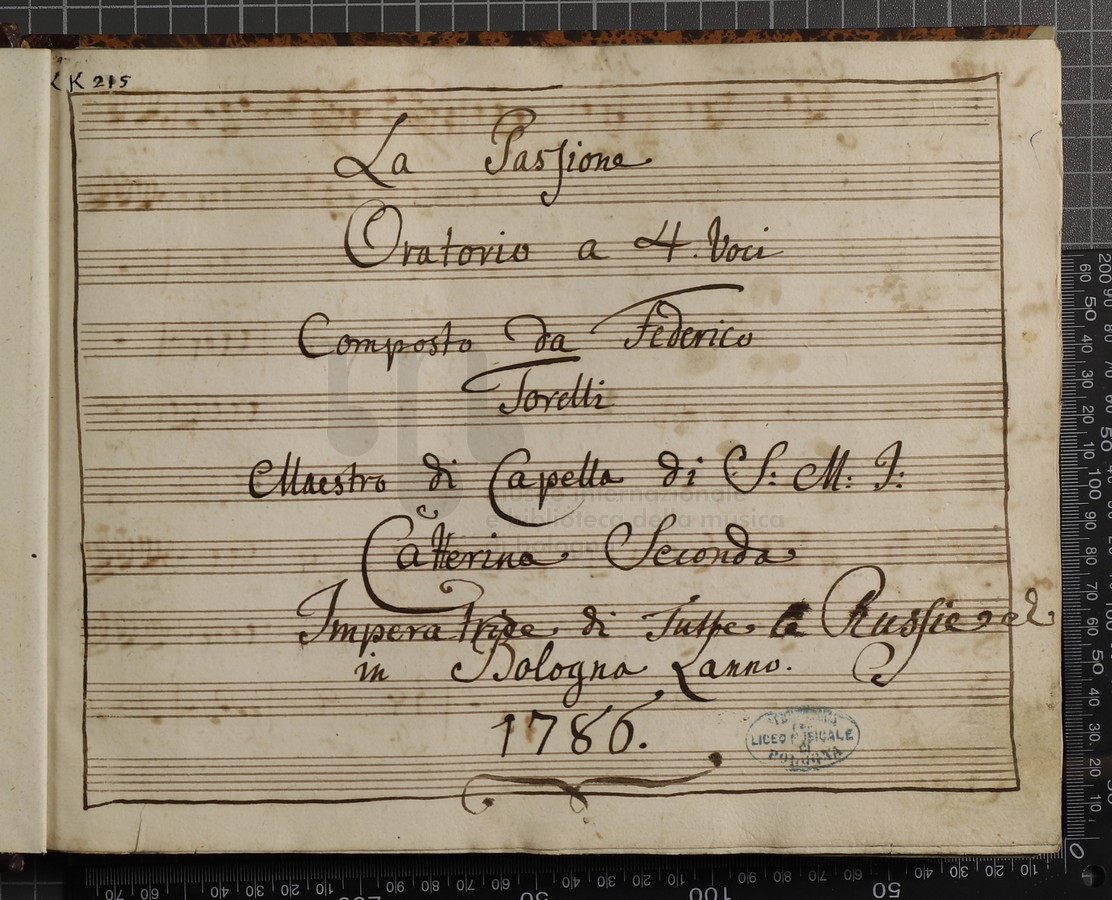 K 215
La Passione
Oratorio a 4. Voci
Composto da Federico
Torelli
Maestro di Capella di S: M: I:
Catterina Seconda
Imperatrice di Tutte le Russie ed
in Bologna Lanno.
1786.
LICEO MUSICALE
DI
BOLOGNA
museo internazionale
e biblioteca della musica